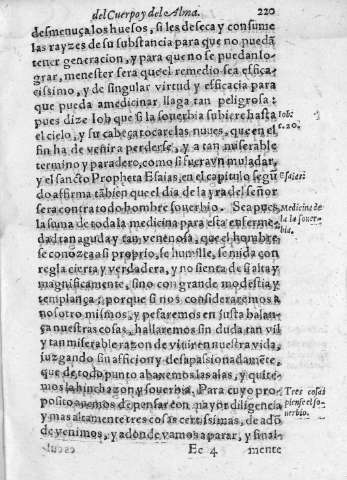 del Cuerpo y del Alma. 220
desmenuça los huesos, si les deseca y consume
las rayzes de su substancia para que no puedã
tener generacion, y para que no se puedan lo-
grar, menester sera que el remedio sea efica-
cissimo, y de singular virtud y efficacia para
que pueda amedicinar llaga tan peligrosa:
pues dize Iob que si la souerbia subiere hasta
Iob:
el cielo, y su cabeça tocare las nuues, que en el
c. 20.
fin ha de venir a perderse, y a tan miserable
termino y paradero, como si fuera vn muladar,
y el sancto Propheta Esaias, en el capitulo segũ
Esaie:
do affirma tãbien que el dia de la yra del señor
sera contra todo hombre souerbio. Sea pues,
Medicina de
la suma de toda la medicina para esta enferme
la souer-
dad tan aguda y tan venenosa, que el hombre
bia.
se conozca a si proprio, se humille, se mida con
regla cierta y verdadera, y no sienta de si alta y
magnificamente, sino con grande modestia y
templança: porque si nos consideraremos a
nosotro mismos, y pesaremos en justa balan-
ça nuestras cosas, hallaremos sin duda tan vil
y tan miserable razon de viuir en nuestra vida,
juzgando sin afficion y desapassionadamẽte,
que de todo punto abaxemos las alas, y quite-
mos la hinchazon y souerbia. Para cuyo pro-
Tres cosas
posito auemos de pensar con mayor diligencia
piense el so-
y mas altamente tres cosas certissimas, de adõ
uerbio.
de venimos, y adonde vamos a parar, y final-
Ee 4 mente